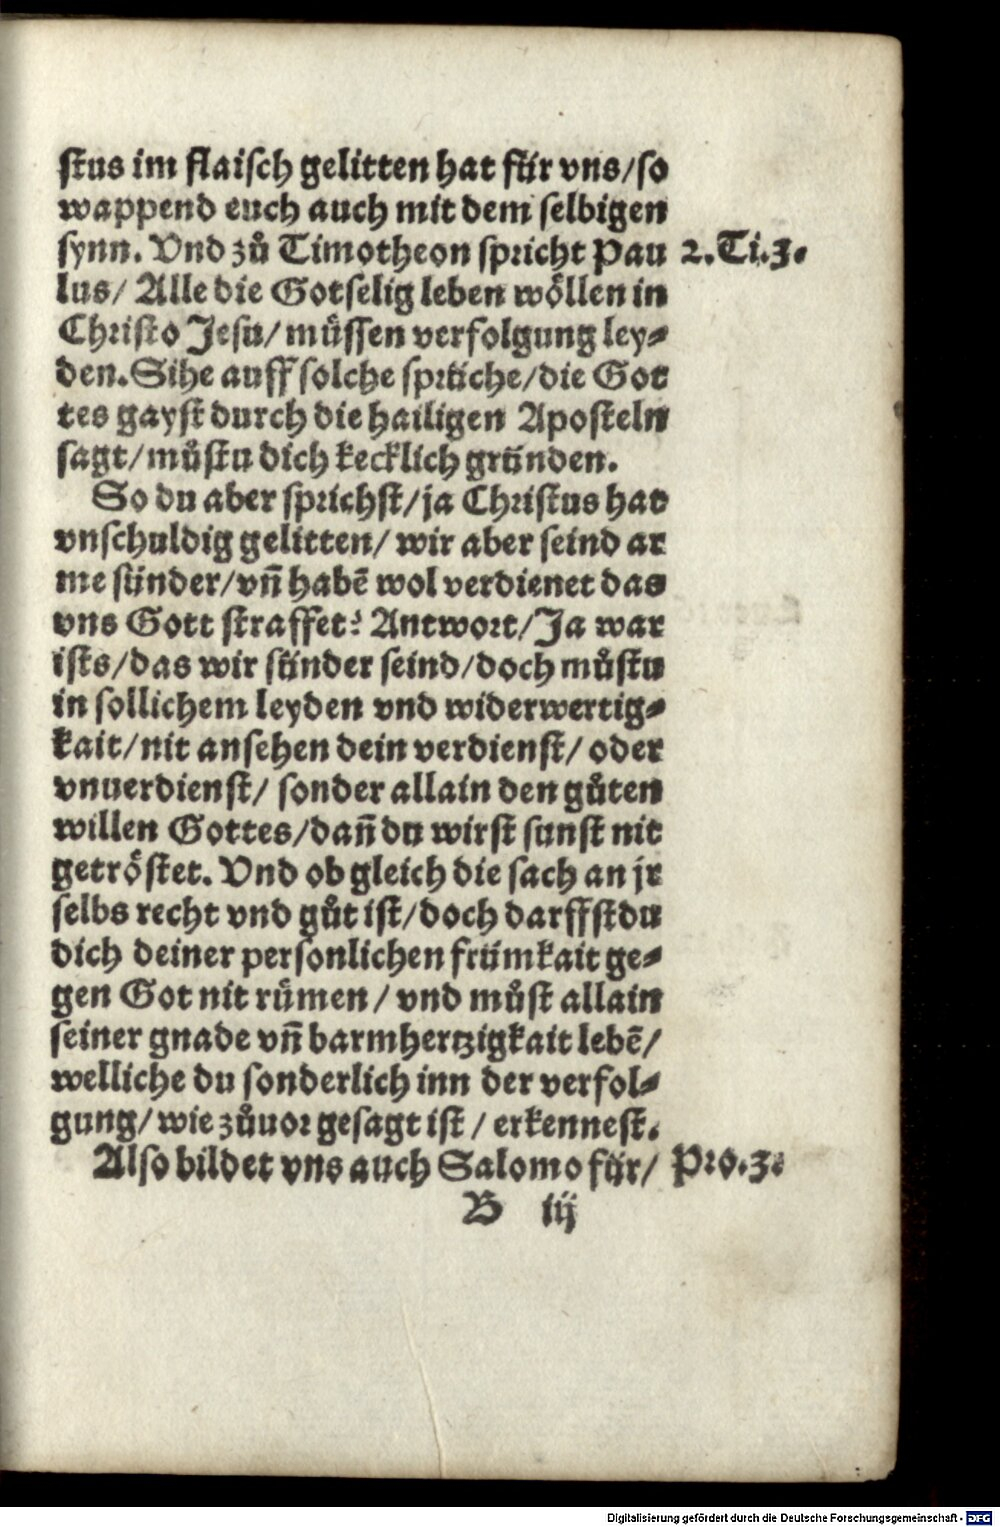 stus im flaisch gelitten hat für vns/so
wappend euch auch mit dem selbigen
synn. Vnd zů Timotheon spricht Pau 2.Ti.3.
lus/ Alle die Gotselig leben wöllen in
Christo Jesu/ müssen verfolgung ley⸗
den. Sihe auff solche sprüche/die Got
tes gayst durch die hailigen Aposteln
sagt/můstu dich kecklich gründen.
So du aber sprichst/ja Christus hat
vnschuldig gelitten/ wir aber seind ar
me sünder/vñ habē wol verdienet das
vns Gott straffet? Antwort/Ja war
ists/das wir sünder seind/doch můstu
in sollichem leyden vnd widerwertig⸗
kait/nit ansehen dein verdienst/ oder
vnuerdienst/ sonder allain den gůten
willen Gottes/dañ du wirst sunst nit
getröstet. Vnd ob gleich die sach an jr
selbs recht vnd gůt ist/doch darffstdu
dich deiner personlichen frümkait ge⸗
gen Got nit rümen/ vnd můst allain
seiner gnade vñ barmhertzigkait lebē/
welliche du sonderlich inn der verfol⸗
gung/wie zůuor gesagt ist/ erkennest.
Also bildet vns auch Salomo für/ Pro.3.
B iij
Digitalisierung gefördert durch die Deutsche Forschungsgemeinschaft - DFG